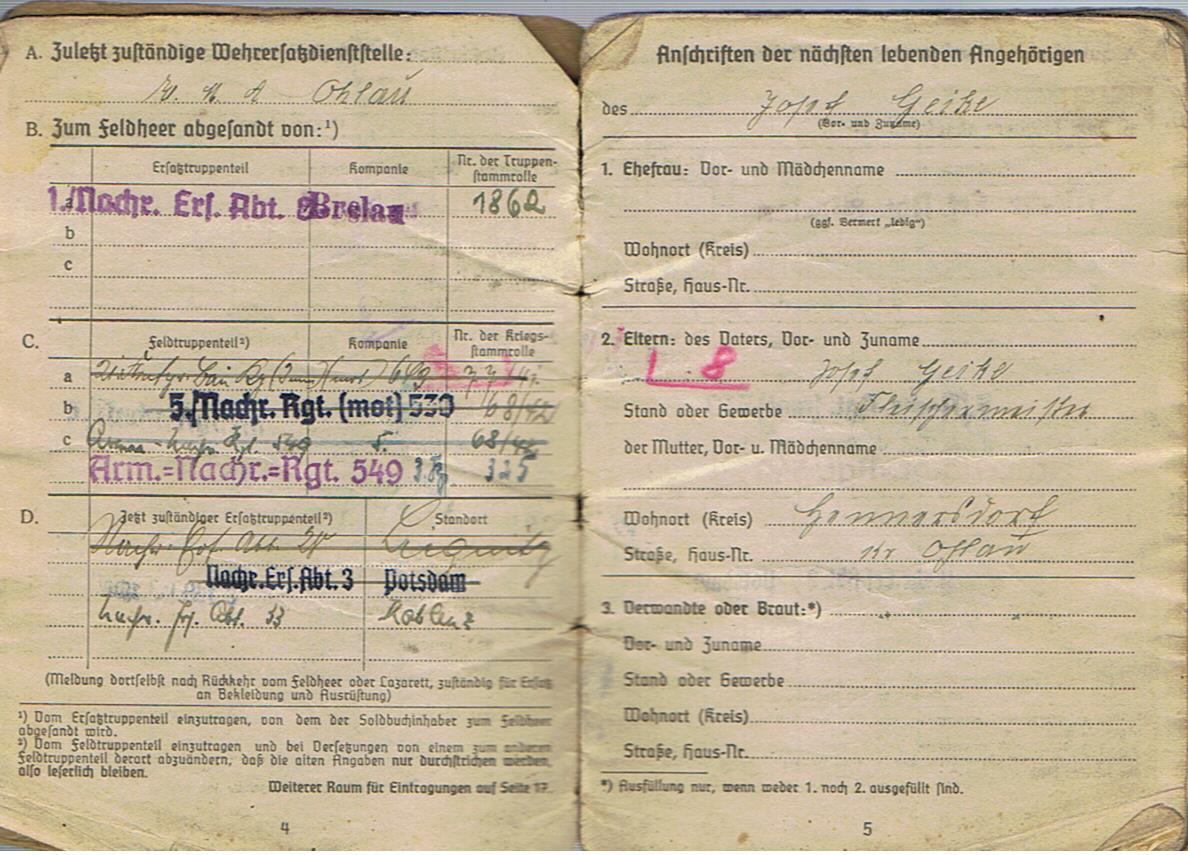 A. Zuletzt zuständige Wehrersatzdienststelle:
W. M. A Ohlau
B. Zum Feldheer abgesandt von:¹)
Ersatztruppenteil Kompanie Nr. der Truppen-
stammrolle
a 1./Nachr. Ers. Abt. Breslau 1862
b
c
C. Feldtruppenteil²) Kompanie Nr. der Kriegs-
stammrolle
a
b 5./Nachr. Rgt. (mot) 530 68/42
c 549 5. 68/42
Arm.=Nachr.=Rgt. 549 325
D. Jetzt zuständiger Ersatztruppenteil²) Standort
Nachr. Ers. Abt. Liegnitz
Nachr. Ers. Abt. 3 Potsdam
Nachr. Ers. Abt. 33 Koblenz
(Meldung dortselbst nach Rückkehr vom Feldheer oder Lazarett, zuständig für Ersatz
an Bekleidung und Ausrüstung)
¹) Vom Ersatztruppenteil einzutragen, von dem der Soldbuchinhaber zum Feldheer
abgesandt wird.
²) Vom Feldtruppenteil einzutragen und bei Versetzungen von einem zum anderen
Feldtruppenteil derart abzuändern, daß die alten Angaben nur durchstrichen werden,
also leserlich bleiben.
Weiterer Raum für Eintragungen auf Seite 17.
4
Anschriften der nächsten lebenden Angehörigen
des Josef Geike
(Vor- und Zuname)
1. Ehefrau: Vor- und Mädchenname
(ggf. Vermerk „ledig“)
Wohnort (Kreis)
Straße, Haus-Nr.
2. Eltern: des Vaters, Vor- und Zuname
L. 8 Josef Geike
Stand oder Gewerbe Fleischermeister
der Mutter, Vor- u. Mädchenname
Wohnort (Kreis) Hennersdorf
Straße, Haus-Nr. Kr Ohlau
3. Verwandte oder Braut:*)
Vor- und Zuname
Stand oder Gewerbe
Wohnort (Kreis)
Straße, Haus-Nr.
*) Ausfüllung nur, wenn weder 1. noch 2. ausgefüllt sind.
5